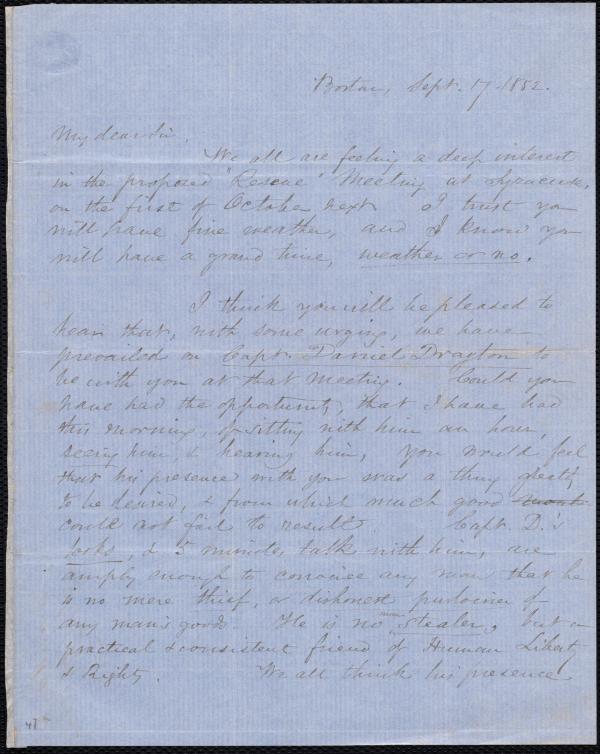 Boston, Sept. 17. 1852.
My dear Sir.
We all are feeling a deep interest
in the proposed "Rescue" Meeting at Syracuse,
on the first of October next. I trust you
will have fine weather, and I know you
will have a grand time, weather or no.
I think you will be pleased to
hear that, with some urging, we have
prevailed on Capt. Daniel Drayton to
be with you at that meeting. Could you
have had the opportunity, that I have had
this morning, of sitting with him an hour,
seeing him, & hearing him, you would feel
that his presence with you was a thing greatly
to be desired, & from which much good
could not fail to result. Capt. D.'s
looks, & 5 minutes talk with him, are
amply enough to convince any man that he
is no mere thief, or dishonest purloiner of
any man's goods. He is no stealer, but a
practical & consistent friend of Human Liberty
& Rights. We all think his presence
47